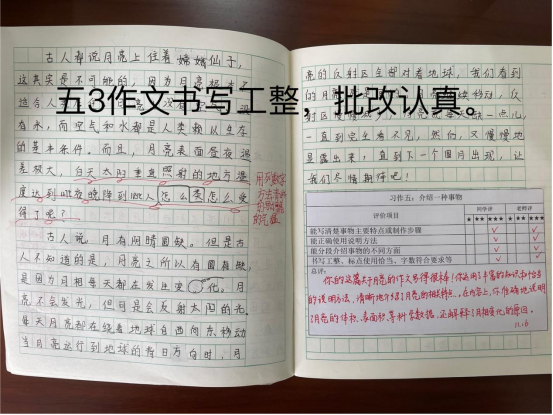 五3作文书写工整，批改认真。
古人都说月亮上住着嫦娥仙子，
这其实是不可能的，因为月亮根本不
适合人
有水，而空气和水都是人类赖以生存
的基本条件。而且，月亮表面昼夜温
差极大，白天太阳垂直照射的地方温
度达到127℃夜晚降到-183℃人怎么类怎么受
得了呢？
古人说，月有阴晴圆缺。但是古
人不知道的是，月亮之所以有圆有缺，
是因为月相每天都在发生变化。月
亮不会发光，但可是会反射太阳的光。
每天月亮都在绕着地球自西向东移动
当月亮运行到地球的背日方向时，月
用列数字
方法
亮的反射区全部对着地球，我们看到
的月
一直到完全看不见，然而，又慢慢地
显露出来，直到下一个圆月出现，让
我们尽情期待吧！
习作五：介绍一种事物
评价项目
同学评
老师评
★ ★★ ★★★ ★ ★★ ★★★
能写清楚事物主要特点或制作步骤
能正确使用说明方法
能分段介绍事物的不同方面
书写工整、标点使用恰当、字数符合要求等
总评：
你的这篇关于月亮的作文写得很棒！你运用了丰富的知识和恰当
的说明方法，清晰地介绍了月亮的相关特点。在内容上，你准确地说明
了月亮的体积、表面积等科学数据，还解释了月相变化的原因。